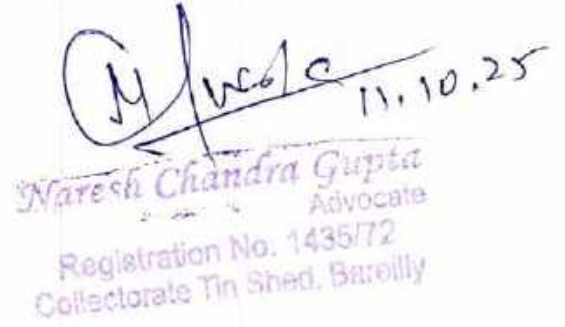 11.10.25
Naresh Chandra Gupta
Advocate
Registration No. 1435/72
Collectorate Tin Shed, Bareilly